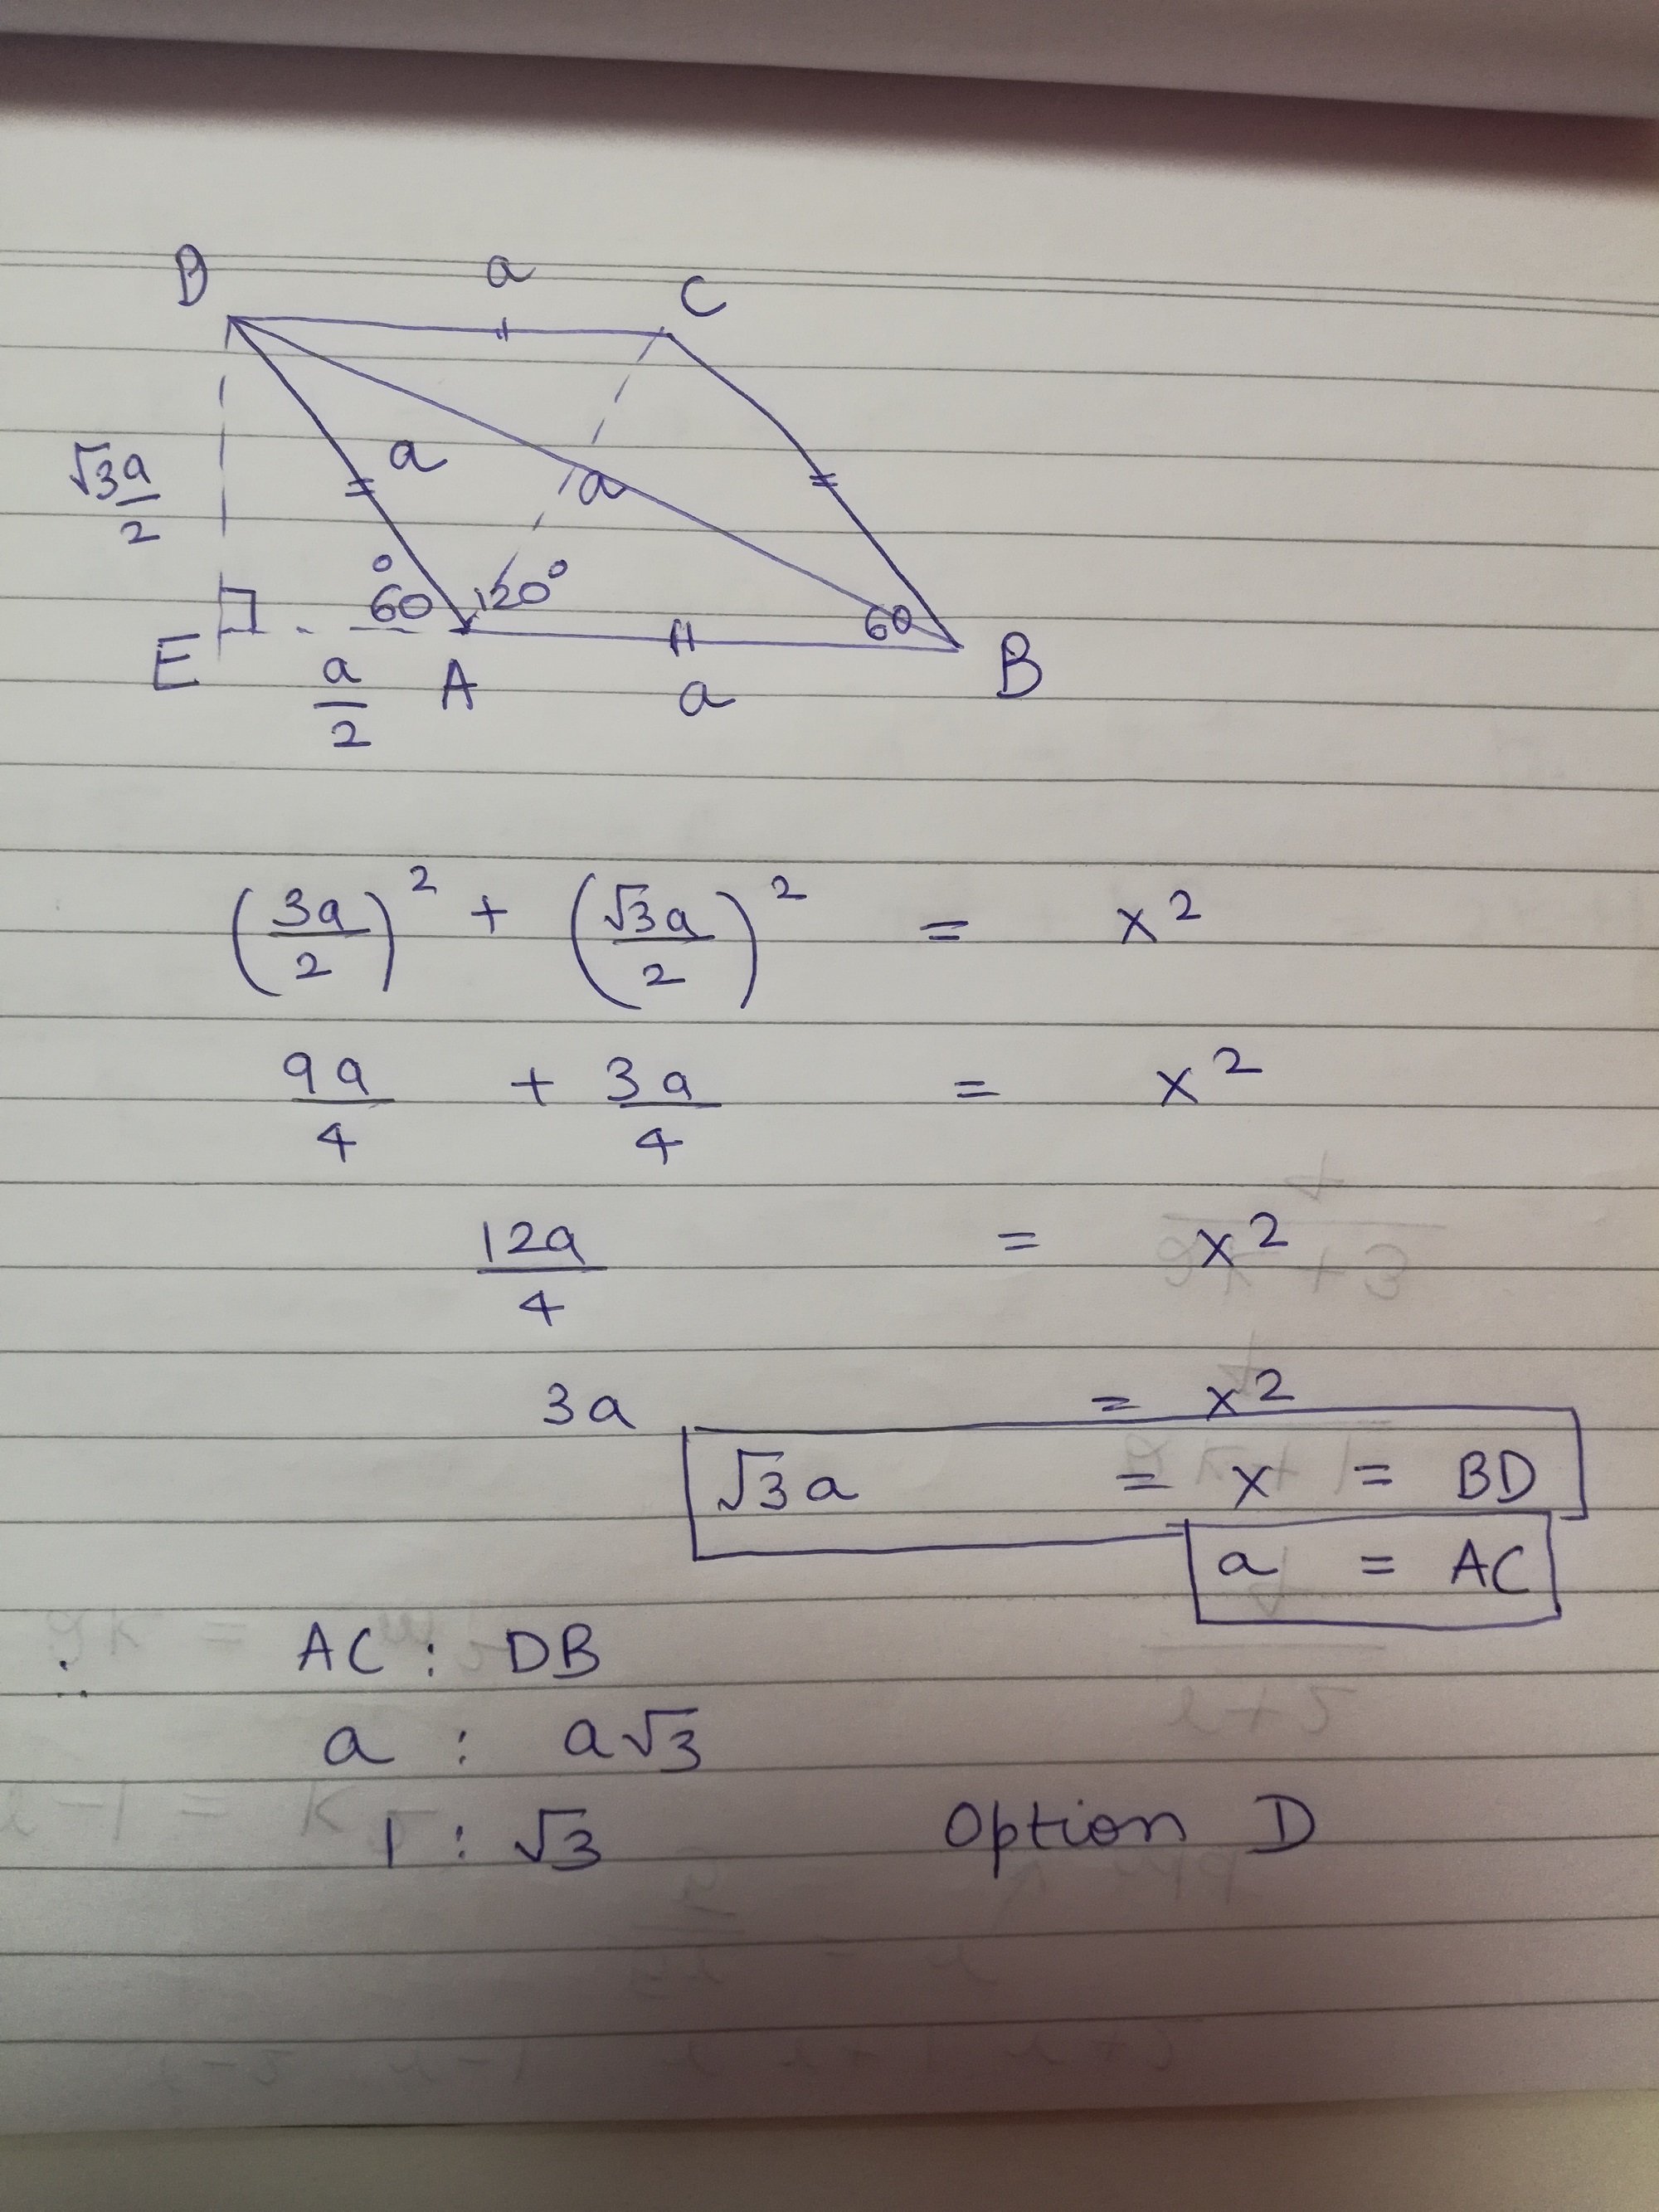 D a C
√3a/2 a a
60° 120° 60
E a/2 A a B
(3a/2)² + (√3a/2)² = x²
9a/4 + 3a/4 = x²
12a/4 = x²
3a = x²
√3a = x = BD
a = AC
∴ AC : DB
a : a√3
1 : √3 Option D